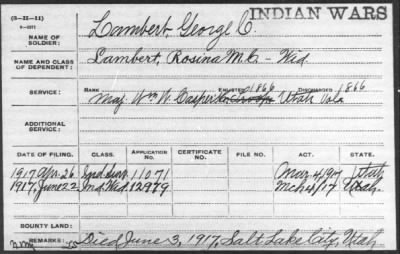 (3-H-11)
INDIAN WARS
NAME OF SOLDIER: Lambert George C.
NAME AND CLASS OF DEPENDENT: Lambert, Rosina M.C. - Wid.
SERVICE: RANK ENLISTED 1866 DISCHARGED 1866
Maj. Wm W. Casper Utah Vols
ADDITIONAL SERVICE:
DATE OF FILING. CLASS. APPLICATION NO. CERTIFICATE NO. FILE NO. ACT. STATE.
1917, Apr. 26. Ind. Surv. 11071 Mar. 4 1917 Utah
1917, June 22 Ind. Wid. 12979 Mch 4/17 Utah.
BOUNTY LAND:
REMARKS: Died June 3, 1917, Salt Lake City, Utah.